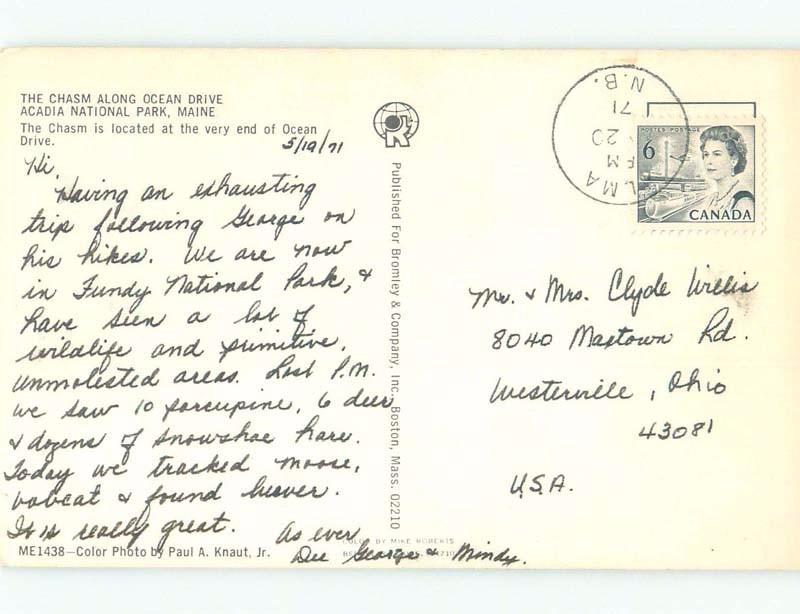 THE CHASM ALONG OCEAN DRIVE
ACADIA NATIONAL PARK, MAINE
The Chasm is located at the very end of Ocean
Drive.
5/19/71
Hi,
Having an exhausting
trip following George on
his hikes. We are now
in Fundy National Park, &
have seen a lot of
wildlife and primitive,
unmolested areas. Last P.M.
we saw 10 porcupine, 6 deer
& dozens of snowshoe hare.
Today we tracked moose,
bobcat & found beaver.
It is really great.
As ever
Dee George & Mindy.
ME1438—Color Photo by Paul A. Knaut, Jr.
COLOR BY MIKE ROBERTS
Published For Bromley & Company, Inc., Boston, Mass. 02210
ALMA
PM
20
71
N.B.
POSTES POSTAGE
6
CANADA
Mr. & Mrs. Clyde Willis
8040 Maxtown Rd.
Westerville, Ohio
43081
U.S.A.